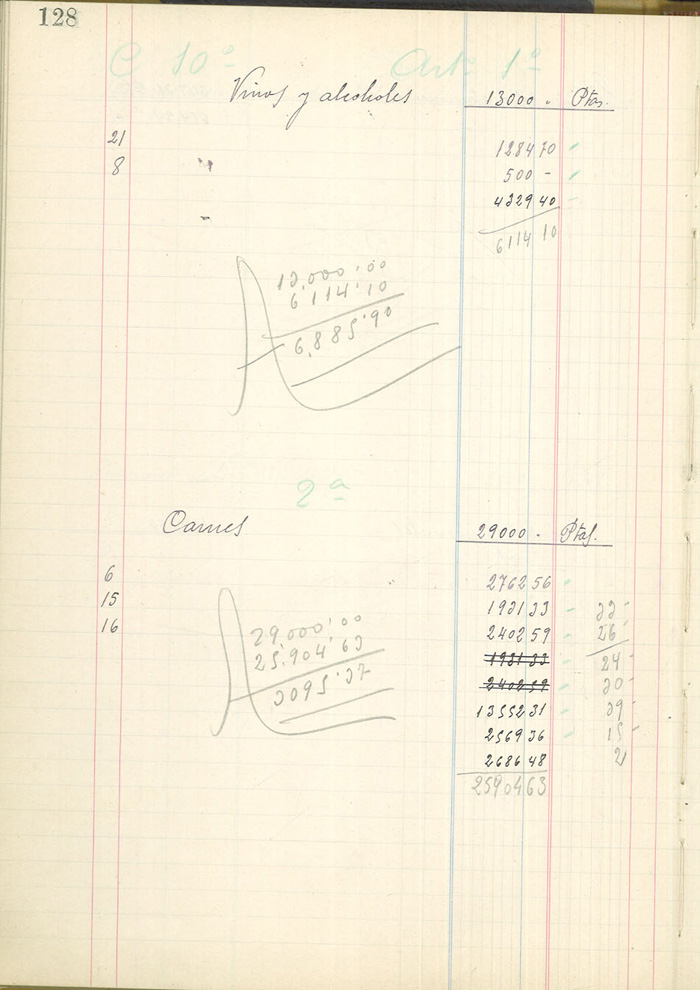 128
C 10ª Art: 1ª
Vinos y alcoholes 13000 . Ptas.
21 1284 70
8 " 500 -
" 4329 40
6114 10
13.000'00
6.114'10
6.885'90
2ª
Carnes 29000 . Ptas.
6 2762 56
15 1931 33 33
16 2402 59 26
1931 33 24
2402 59 30
13552 31 39
2569 36 15
2686 48 2
25904 63
29.000'00
25.904'63
3095'37